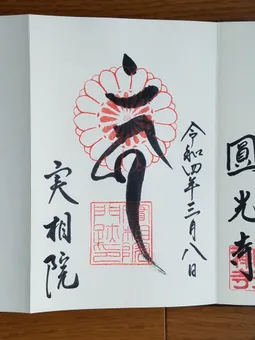 圓光寺
令和四年三月八日
実相院